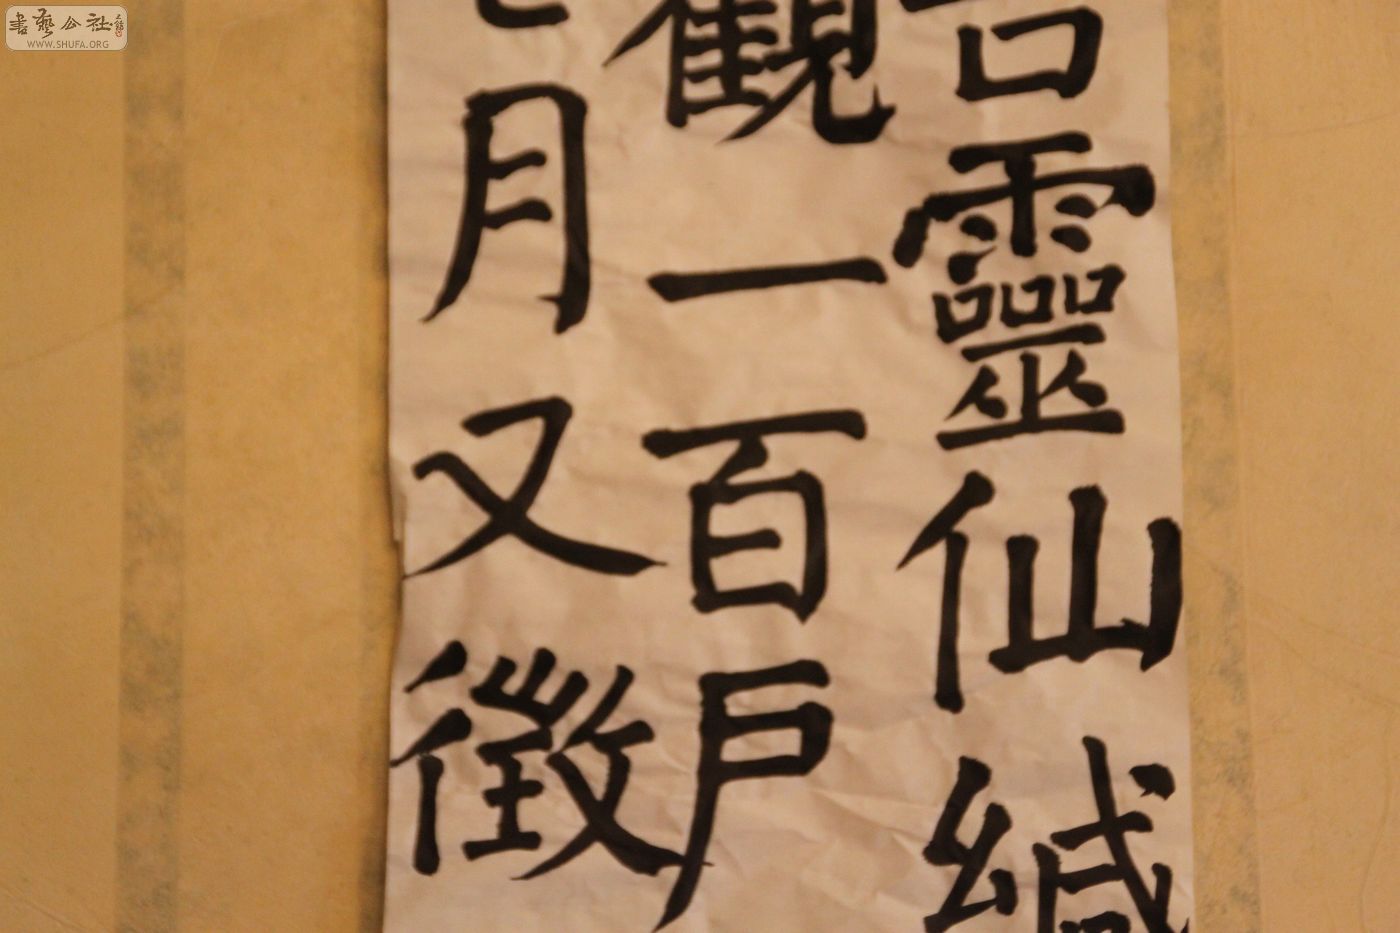 靈仙緘
觀一百戶
月又徵
書藝公社
WWW.SHUFA.ORG